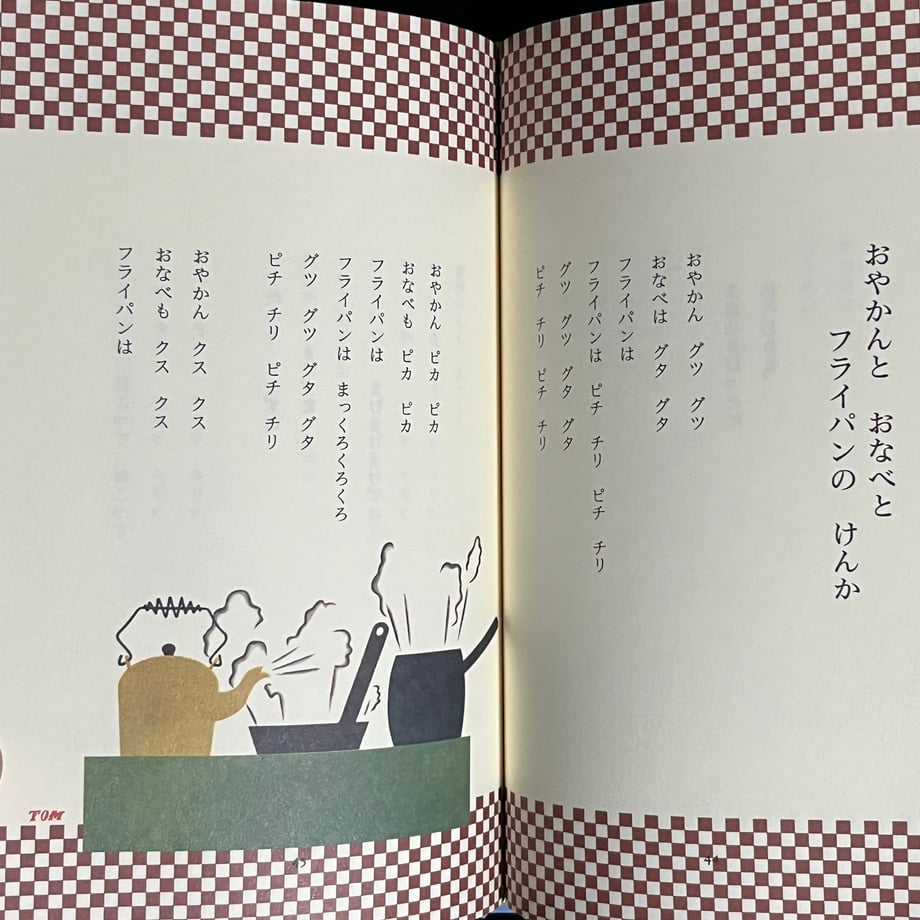 おやかんと　おなべと
フライパンの　けんか
おやかん　グツ　グツ
おなべは　グタ　グタ
フライパンは
フライパンは　ピチ　チリ　ピチ　チリ
グツ　グツ　グタ　グタ
ピチ　チリ　ピチ　チリ
44
おやかん　ピカ　ピカ
おなべも　ピカ　ピカ
フライパンは
フライパンは　まっくろくろくろ
グツ　グツ　グタ　グタ
ピチ　チリ　ピチ　チリ
おやかん　クス　クス
おなべも　クス　クス
フライパンは
TOM
45